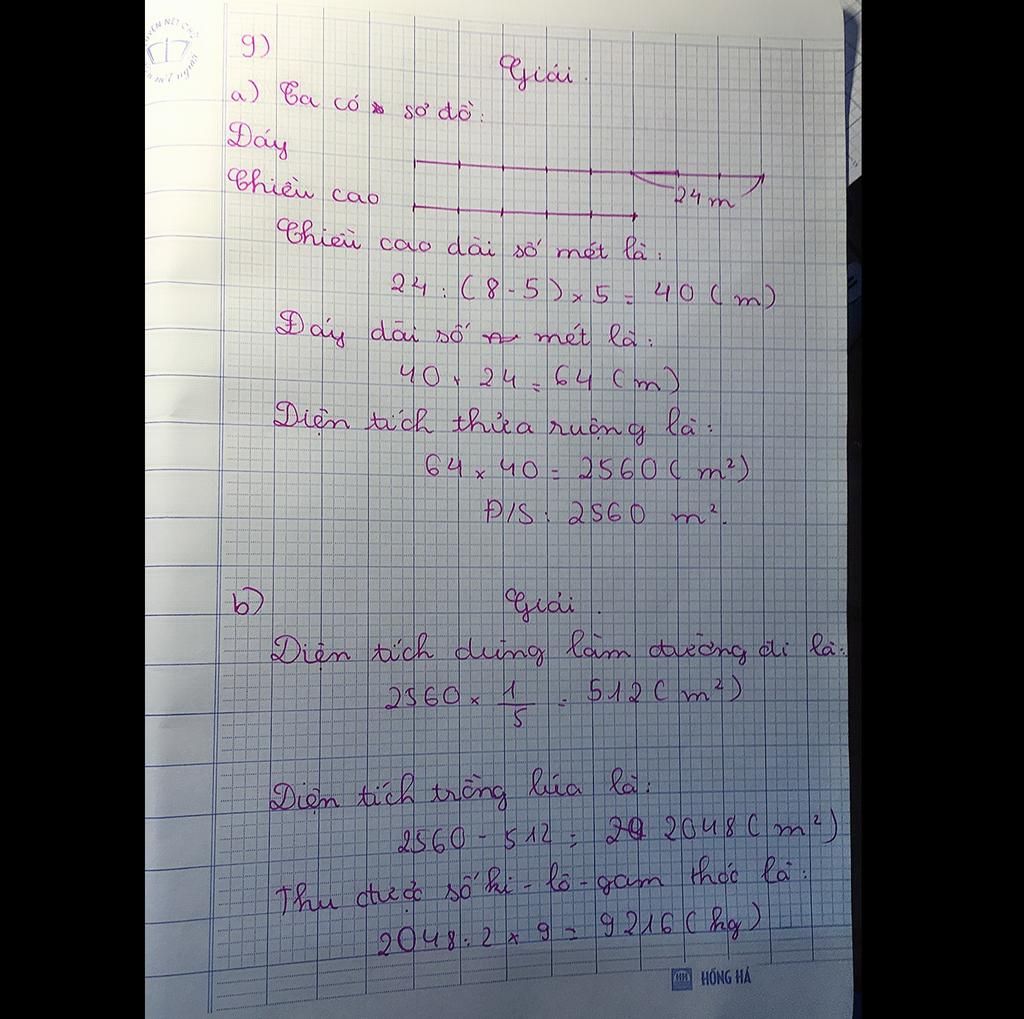 g)
Giải.
a) Ta có sơ đồ:
Đáy
24 m
Chiều cao
Chiều cao dài số mét là:
24 : (8 - 5) × 5 = 40 (m)
Đáy dài số mét là:
40 + 24 = 64 (m)
Diện tích thửa ruộng là:
64 × 40 = 2560 (m²)
Đ/S: 2560 m².
b)
Giải.
Diện tích dùng làm đường đi là:
2560 × 1/5 = 512 (m²)
Diện tích trồng lúa là:
2560 - 512 = 2048 (m²)
Thu được số ki-lô-gam thóc là:
2048 : 2 × 9 = 9216 (kg)
HH HỒNG HÀ